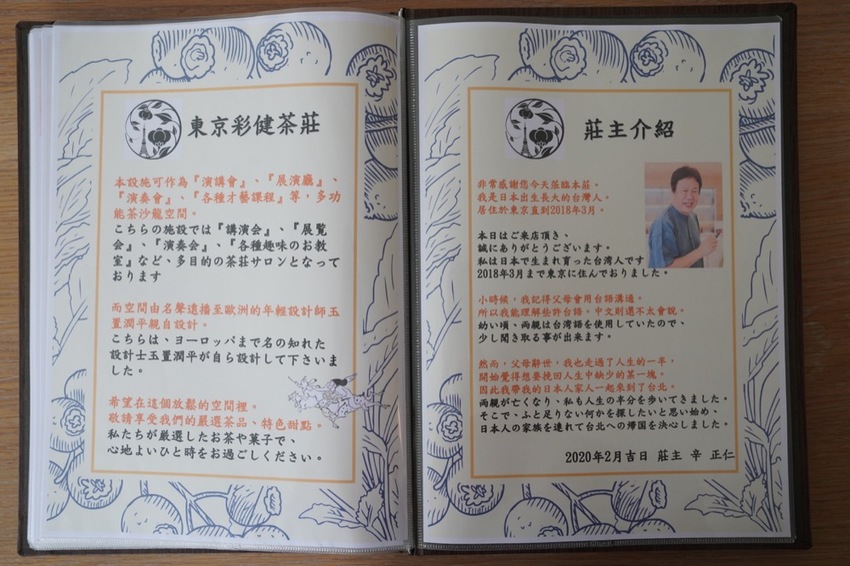 東京彩健茶莊
本設施可作為『演講會』、『展演廳』、
『演奏會』、『各種才藝課程』等，多功
能茶沙龍空間。
こちらの施設では『講演会』、『展覧
会』、『演奏会』、『各種趣味のお教
室』など、多目的の茶荘サロンとなって
おります
而空間由名聲遠播至歐洲的年輕設計師玉
置潤平親自設計。
こちらは、ヨーロッパまで名の知れた
設計士玉置潤平が自ら設計して下さいま
した。
希望在這個放鬆的空間裡。
敬請享受我們的嚴選茶品、特色甜點。
私たちが厳選したお茶や菓子で、
心地よいひと時をお過ごしください。
莊主介紹
非常感謝您今天蒞臨本莊。
我是日本出生長大的台灣人。
居住於東京直到2018年3月。
本日はご来店頂き、
誠にありがとうございます。
私は日本で生まれ育った台湾人です
2018年3月まで東京に住んでおりました。
小時候，我記得父母會用台語溝通。
所以我能理解些許台語。中文則還不太會說。
幼い頃、両親は台湾語を使用していたので、
少し聞き取る事が出来ます。
然而，父母辭世，我也走過了人生的一半，
開始覺得想要挽回人生中缺少的某一塊。
因此我帶我的日本人家人一起來到了台北。
両親が亡くなり、私も人生の半分を歩いてきました。
そこで、ふと足りない何かを探したいと思い始め、
日本人の家族を連れて台北への帰国を決心しました。
2020年2月吉日 莊主 辛 正仁